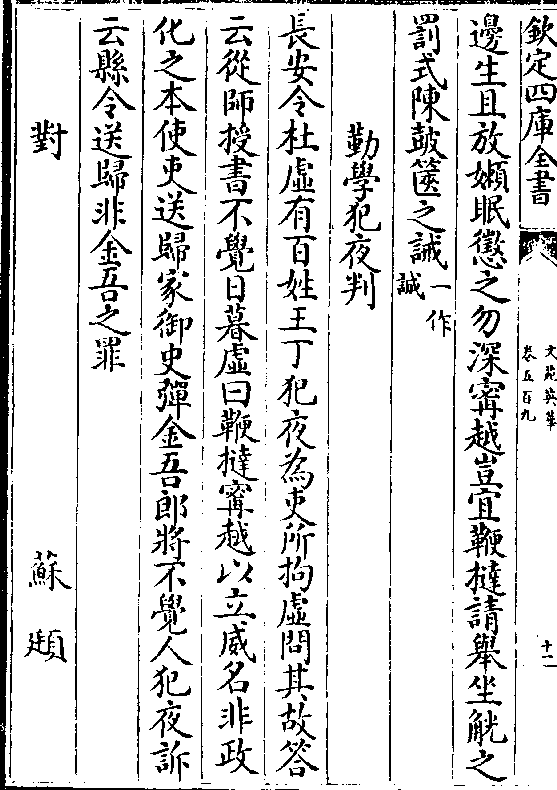 欽定四庫全書
文苑英華
卷五百九
十二
邊生且放嬾眠懲之勿深甯越豈宜鞭撻請舉坐觥之
罰式陳鼓篋之誡一作誠
勤學犯夜判
長安令杜虛有百姓王丁犯夜為吏所拘虛問其故答
云從師授書不覺日暮虛曰鞭撻甯越以立威名非政
化之本使吏送歸家御史彈金吾郎將不覺人犯夜訴
云縣令送歸非金吾之罪
對 蘇頲